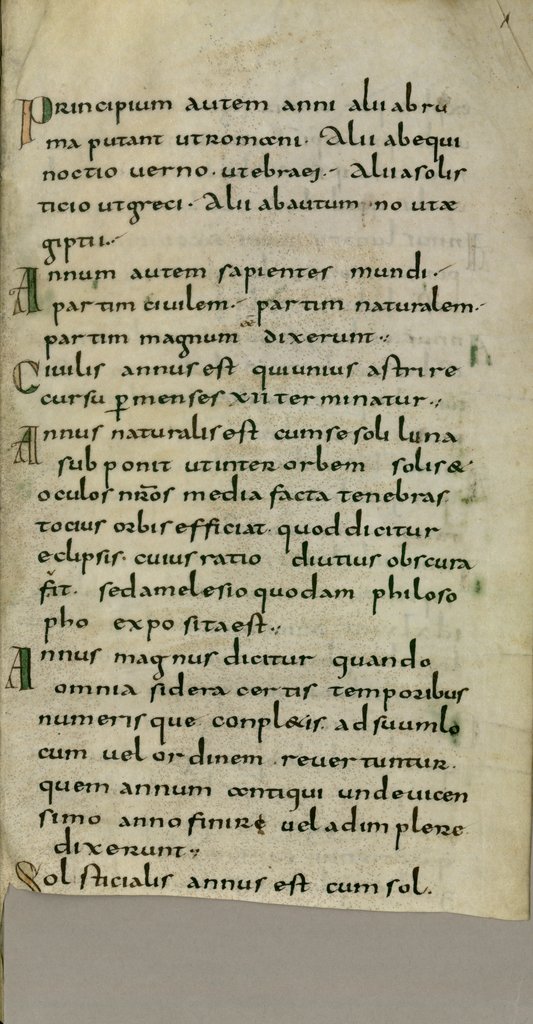 Principium autem anni alii abru
ma putant ut romani. Alii ab equi
noctio uerno. ut ebraei. Alii a solis
ticio ut greci. Alii ab autumno ut ae
giptii.
Annum autem sapientes mundi.
partim ciuilem. partim naturalem.
partim magnum dixerunt.
Ciuilis annus est qui unius astri re
cursu p̄ menses XII terminatur.
Annus naturalis est cum se soli luna
subponit ut inter orbem solis &
oculos nr̄os media facta tenebras
tocius orbis efficiat. quod dicitur
eclipsis. cuius ratio diutius obscura
fit. sed a melesio quodam philoso
pho exposita est.
Annus magnus dicitur quando
omnia sidera certis temporibus
numerisque conpl&is. ad suum lo
cum uel ordinem reuertuntur.
quem annum antiqui undeuicen
simo anno finire uel adimplere
dixerunt.
Solsticialis annus est cum sol.